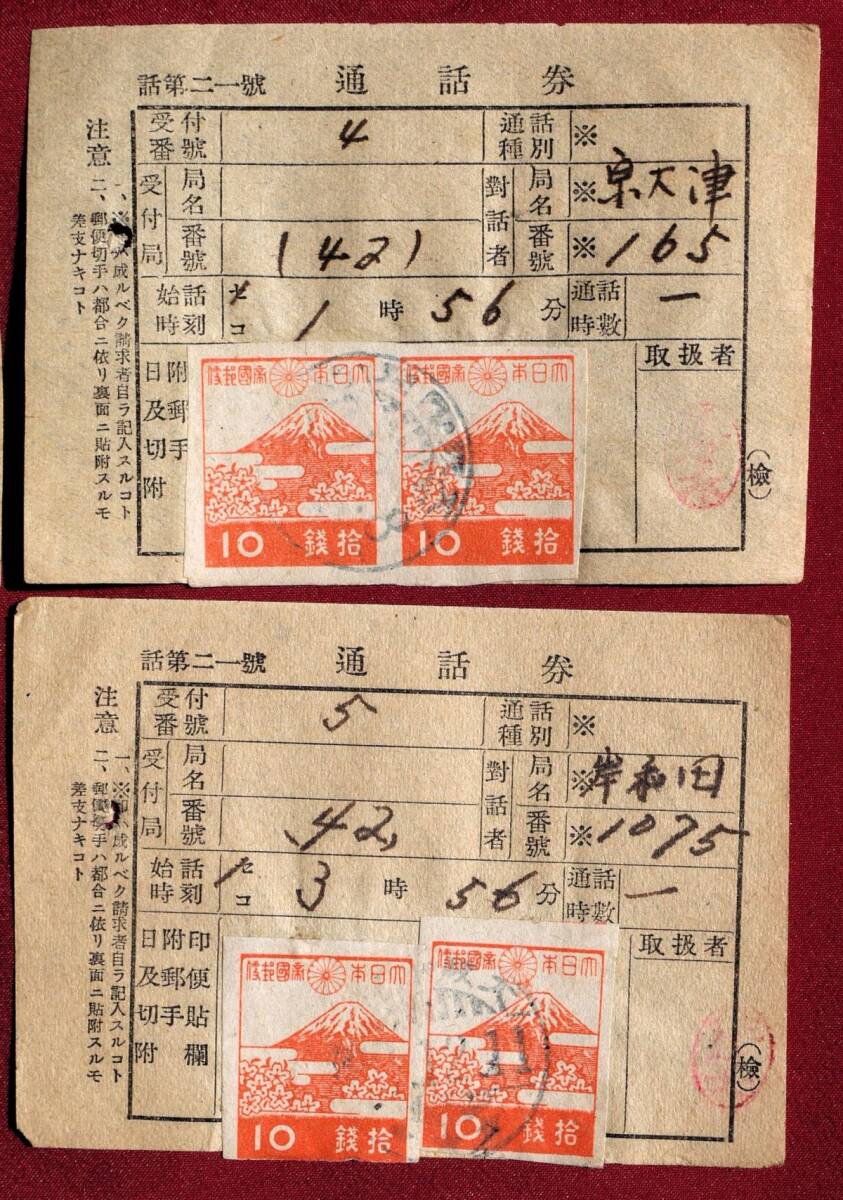 話第二一號 通話券
受付番號 4 通話種別 ※
受付局 局名 對話者 局名 ※ 泉大津
番號 (42) 番號 ※ 165
始話時刻 セ コ 1時56分 通話時數 一
日附及郵切手附
取扱者
(檢)
注意
一、※ ハ成ルベク請求者自ラ記入スルコト
二、郵便切手ハ都合ニ依リ裏面ニ貼附スルモ
差支ナキコト
大日本帝國郵便
10 拾錢
大日本帝國郵便
10 拾錢
話第二一號 通話券
受付番號 5 通話種別 ※
受付局 局名 對話者 局名 ※ 岸和田
番號 (42) 番號 ※ 1075
始話時刻 セ コ 3時56分 通話時數 一
日附印及郵便切手貼附欄
取扱者
(檢)
注意
一、※印ハ成ルベク請求者自ラ記入スルコト
二、郵便切手ハ都合ニ依リ裏面ニ貼附スルモ
差支ナキコト
大日本帝國郵便
10 拾錢
大日本帝國郵便
10 拾錢